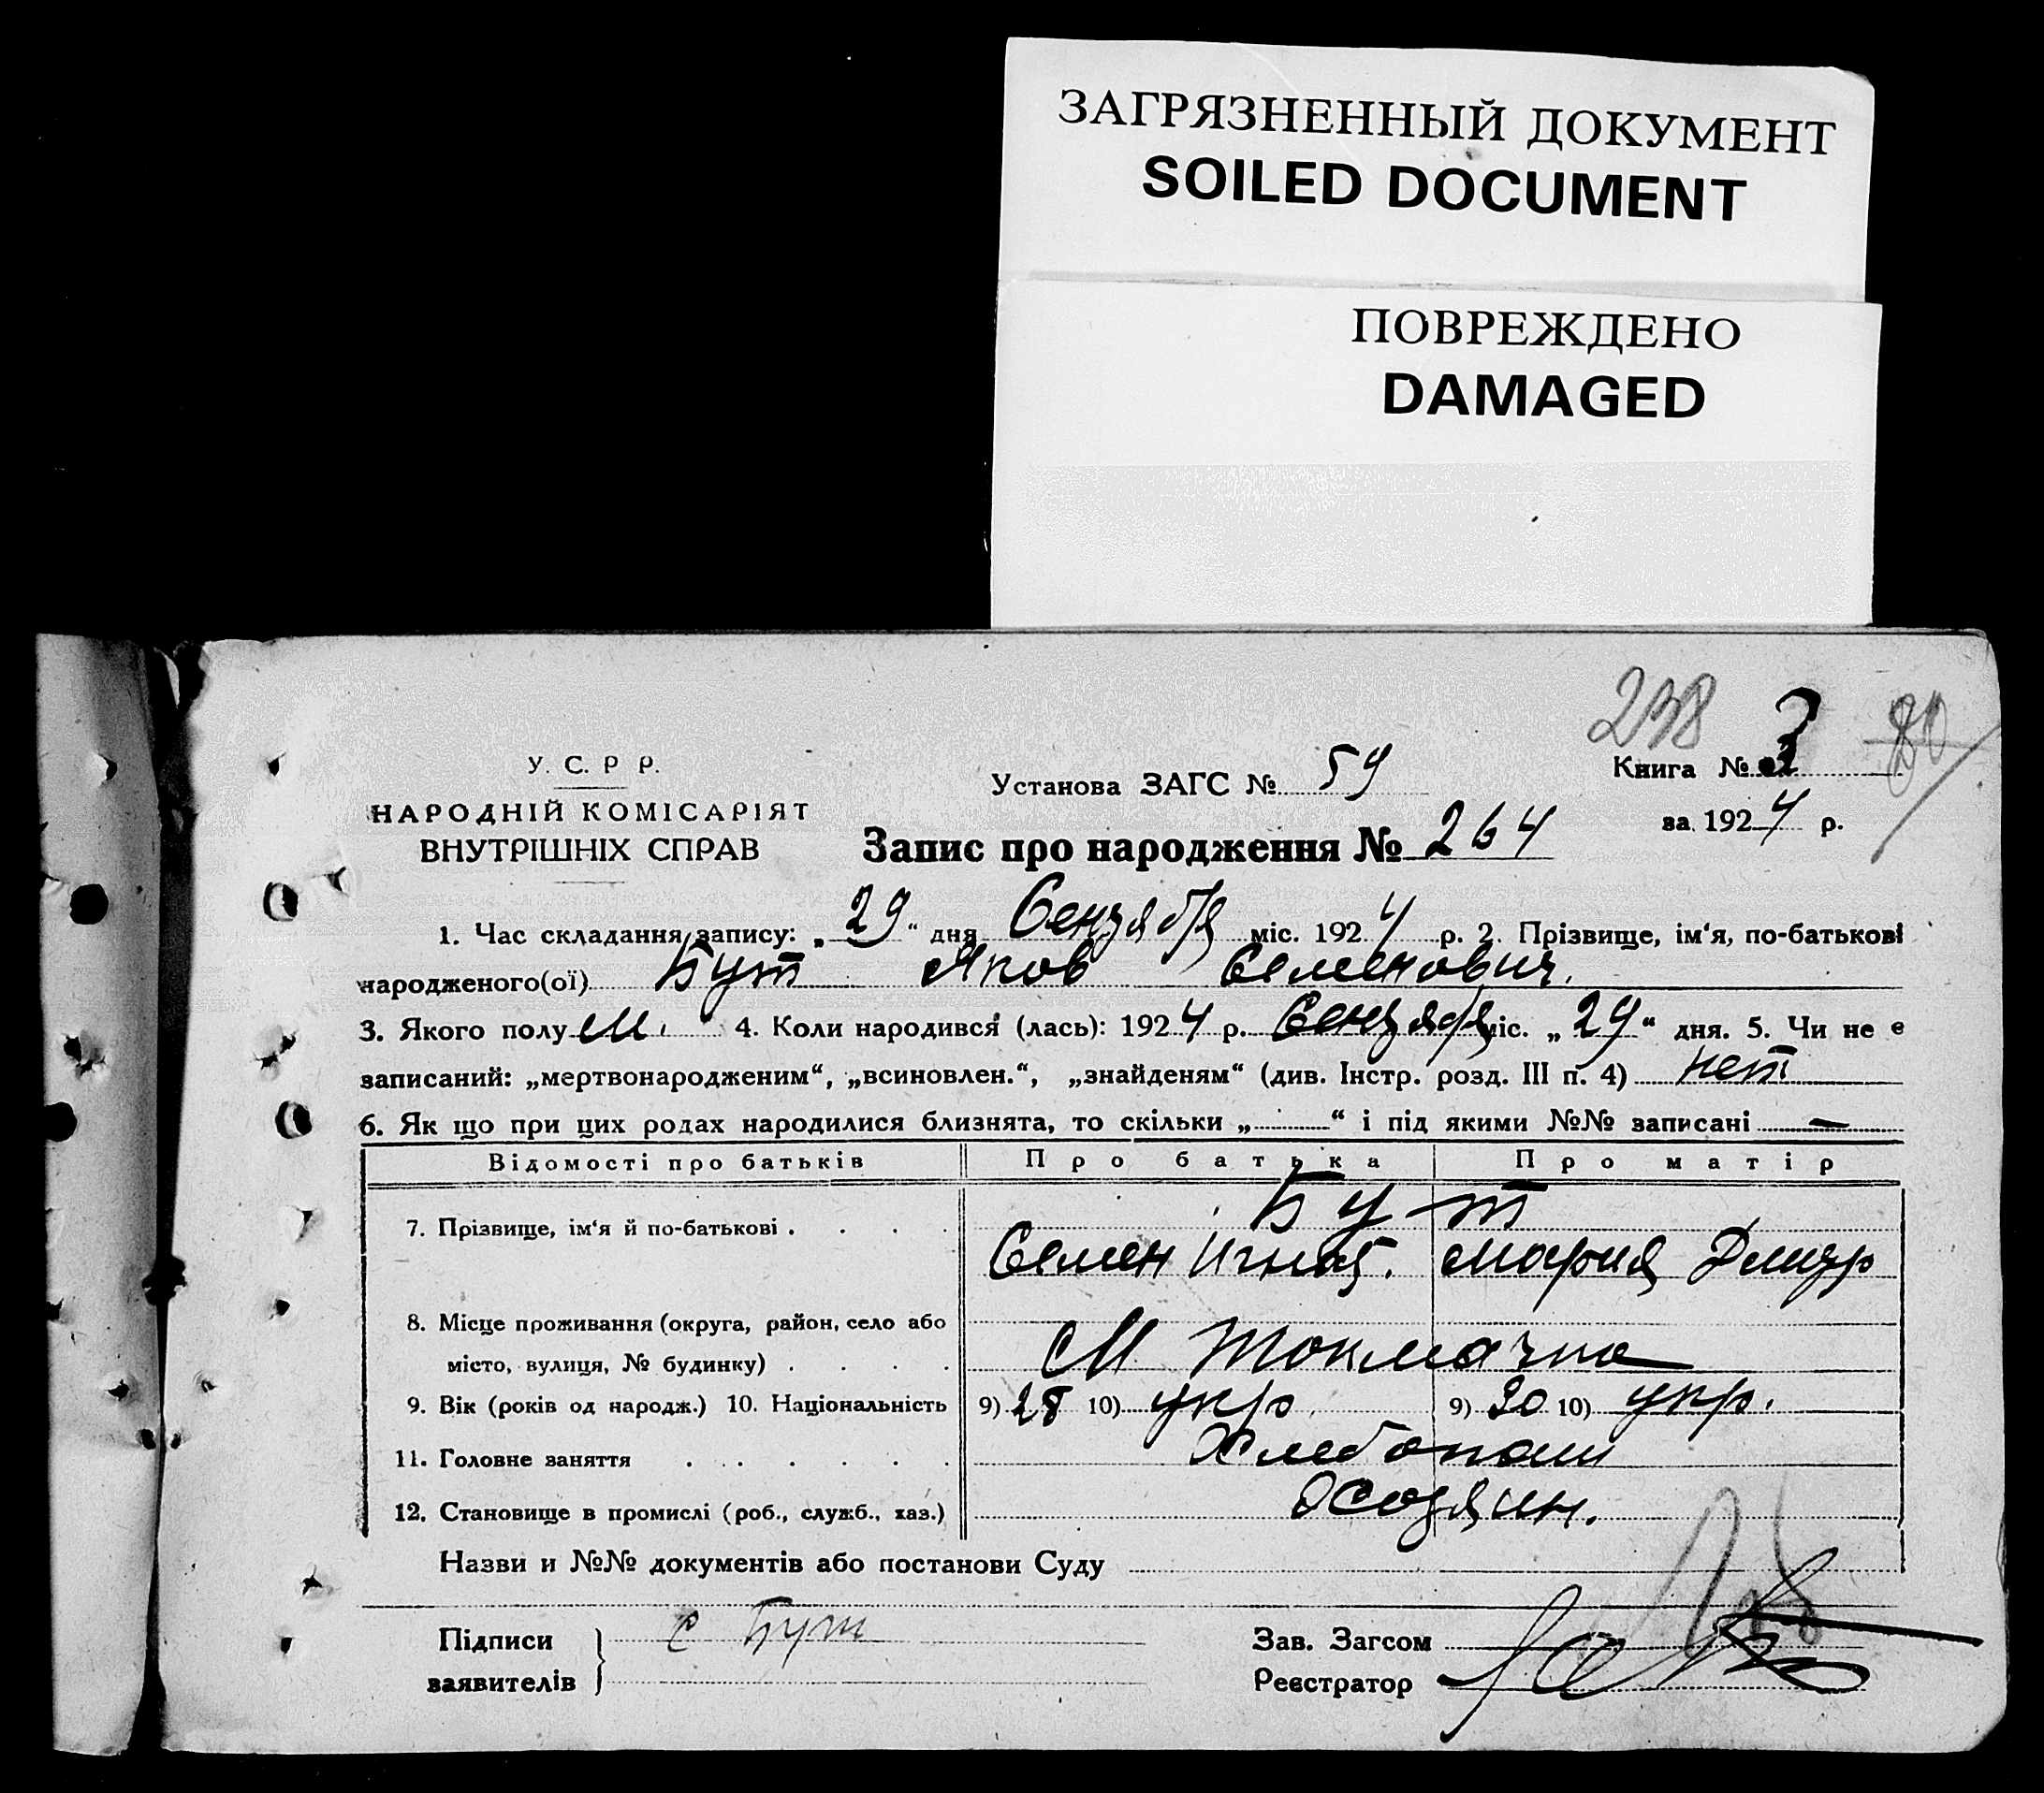 ЗАГРЯЗНЕННЫЙ ДОКУМЕНТ
SOILED DOCUMENT
ПОВРЕЖДЕНО
DAMAGED
238 3 80
У. С. Р Р.
Установа ЗАГС № 59
Книга №
НАРОДНІЙ КОМІСАРІЯТ
ВНУТРІШНІХ СПРАВ
Запис про народження № 264
за 1924 р.
1. Час складання запису: „29“ дня Сентября міс. 1924 р. 2. Прізвище, ім‘я, по-батькові
народженого(ої) Бут Яков Семенович.
3. Якого полу М. 4. Коли народився (лась): 1924 р. Сентября міс. „29“ дня. 5. Чи не є
записаний: „мертвонародженим“, „всиновлен.“, „знайденям“ (див. Інстр. розд. III п. 4) нет
6. Як що при цих родах народилися близнята, то скільки „..........“ і під якими №№ записані —
Відомості про батьків Про батька Про матір
7. Прізвище, ім‘я й по-батькові . . . . Бут
Семен Игнат. Мария Дмитр
8. Місце проживання (округа, район, село або
місто, вулиця, № будинку) . . . . М Токмачка
9. Вік (років од народж.) 10. Національність 9) 28 10) укр. 9) 30 10) укр.
11. Головне заняття . . . . . . . Хлебопаш
12. Становище в промислі (роб., служб., хаз.) Хозяин.
Назви и №№ документів або постанови Суду
Підписи
заявителів
С Бут
Зав. Загсом
Реєстратор